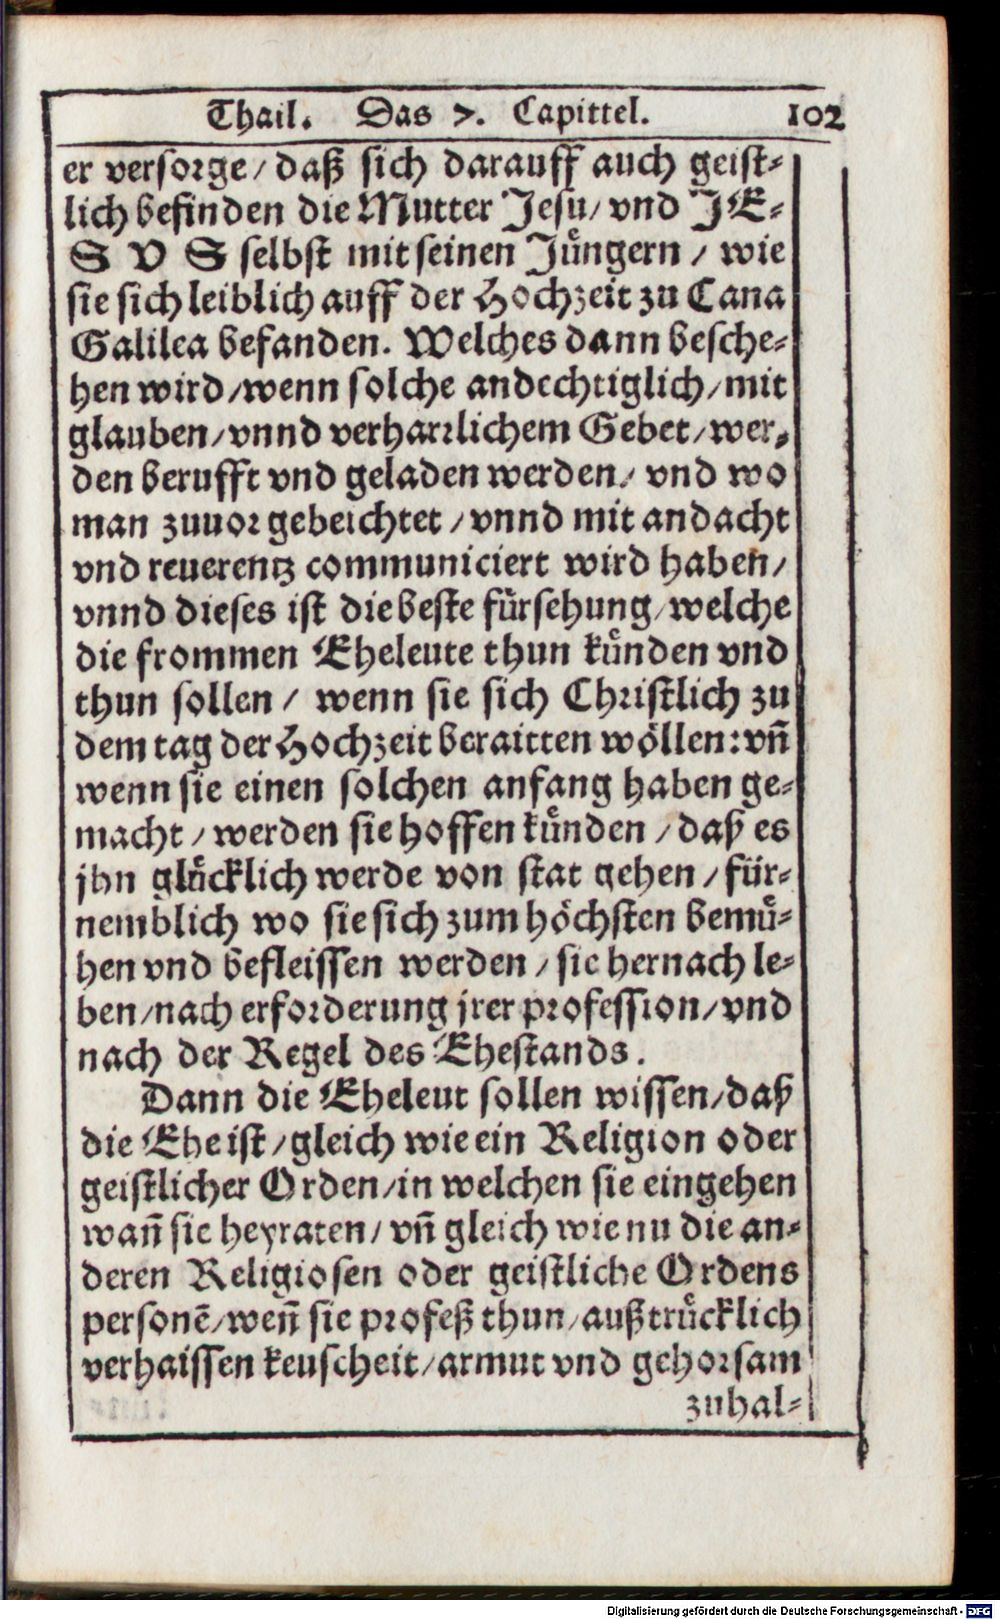 Thail. Das 7. Capittel. 102
er versorge / daß sich darauff auch geist-
lich befinden die Mutter Jesu / vnd JE-
S V S selbst mit seinen Jüngern / wie
sie sich leiblich auff der Hochzeit zu Cana
Galilea befanden. Welches dann besche-
hen wird / wenn solche andechtiglich / mit
glauben / vnnd verharrlichem Gebet / wer-
den berufft vnd geladen werden / vnd wo
man zuuor gebeichtet / vnnd mit andacht
vnd reuerentz communiciert wird haben /
vnnd dieses ist die beste fürsehung / welche
die frommen Eheleute thun künden vnd
thun sollen / wenn sie sich Christlich zu
dem tag der Hochzeit beraitten wöllen: vñ
wenn sie einen solchen anfang haben ge-
macht / werden sie hoffen künden / daß es
jhn glücklich werde von stat gehen / für-
nemblich wo sie sich zum höchsten bemü-
hen vnd befleissen werden / sie hernach le-
ben / nach erforderung jrer profession / vnd
nach der Regel des Ehestands.
Dann die Eheleut sollen wissen / daß
die Ehe ist / gleich wie ein Religion oder
geistlicher Orden / in welchen sie eingehen
wañ sie heyraten / vñ gleich wie nu die an-
deren Religiosen oder geistliche Ordens
personẽ / weñ sie profeß thun / außtrücklich
verhaissen keuscheit / armut vnd gehorsam
zuhal-
Digitalisierung gefördert durch die Deutsche Forschungsgemeinschaft - DFG